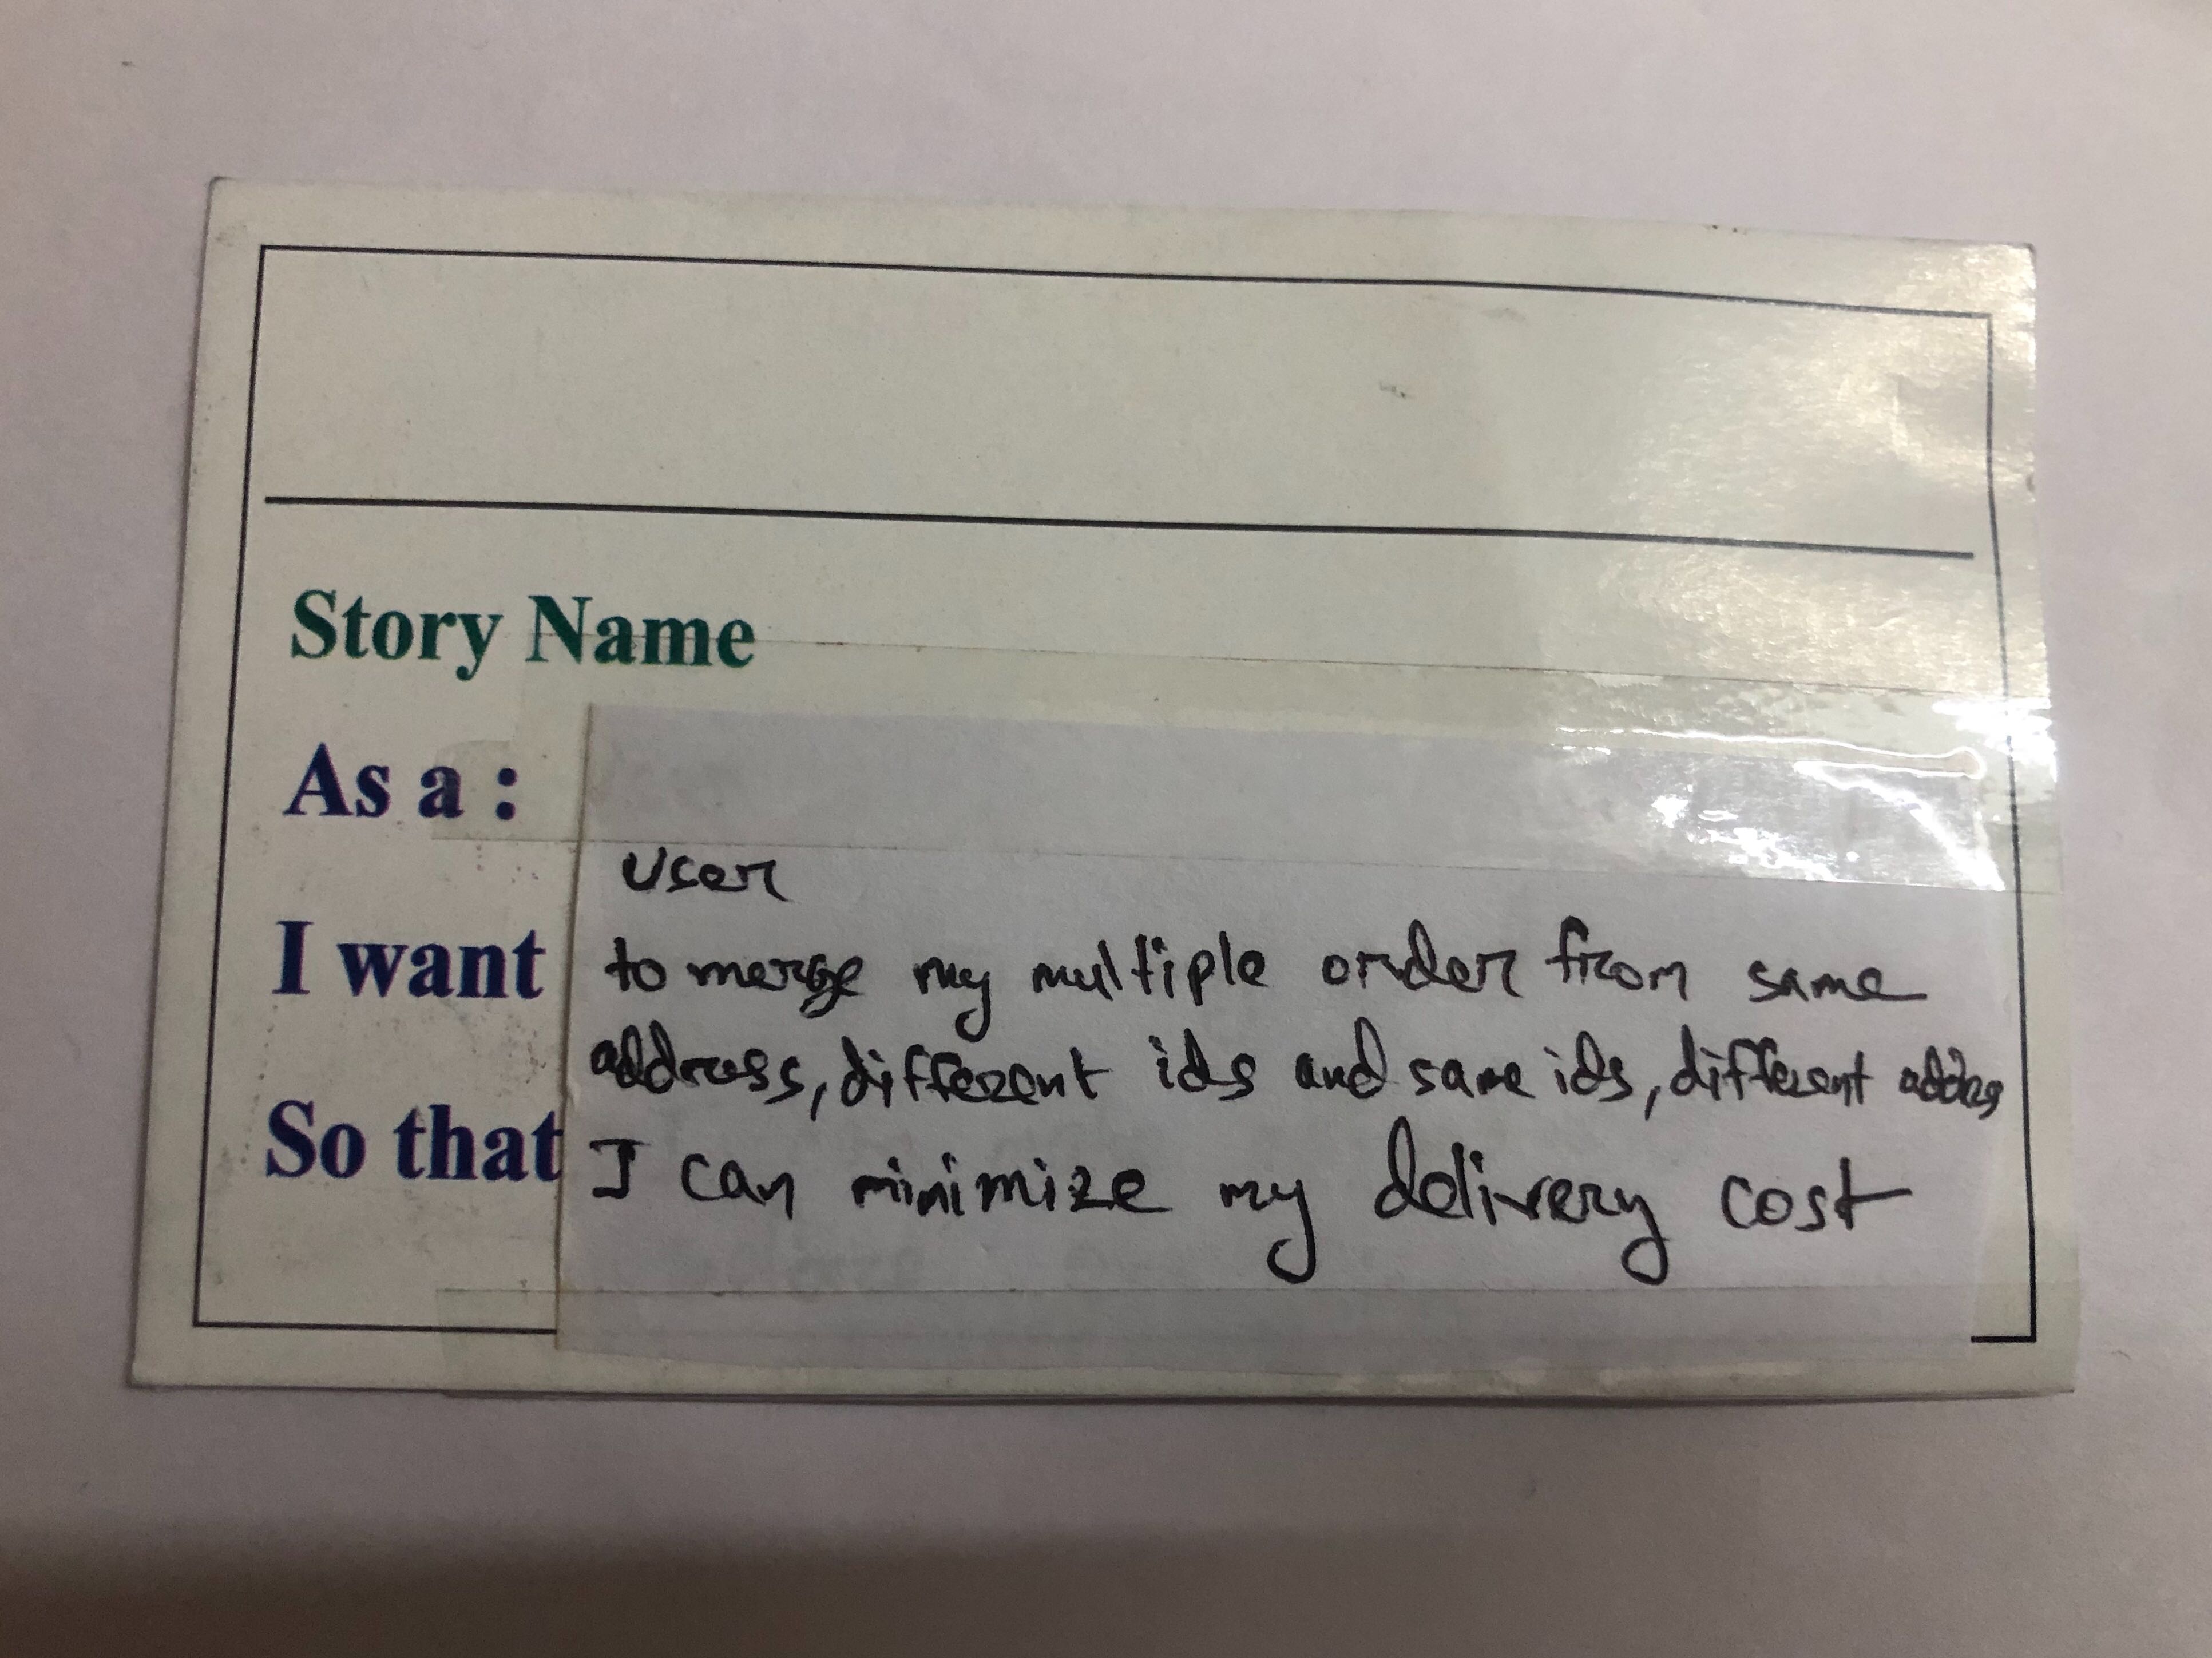 Story Name
As a :
User
I want to merge my multiple order from same
address, different ids and same ids, different
So that I can minimize my delivery cost